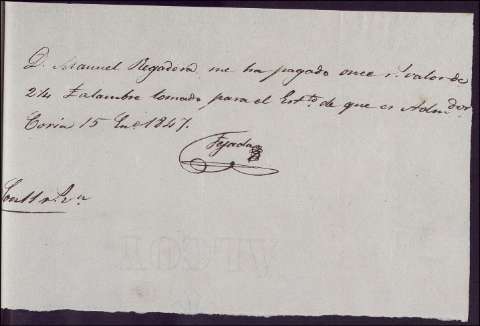 D. Manuel Regadera, me ha pagado once r.s valor de
2 1/4 alambre tomado para el Est.do de que es Adm.dor
Coria 15 En.o 1847.
Tejada
Son 11 r.s v.n